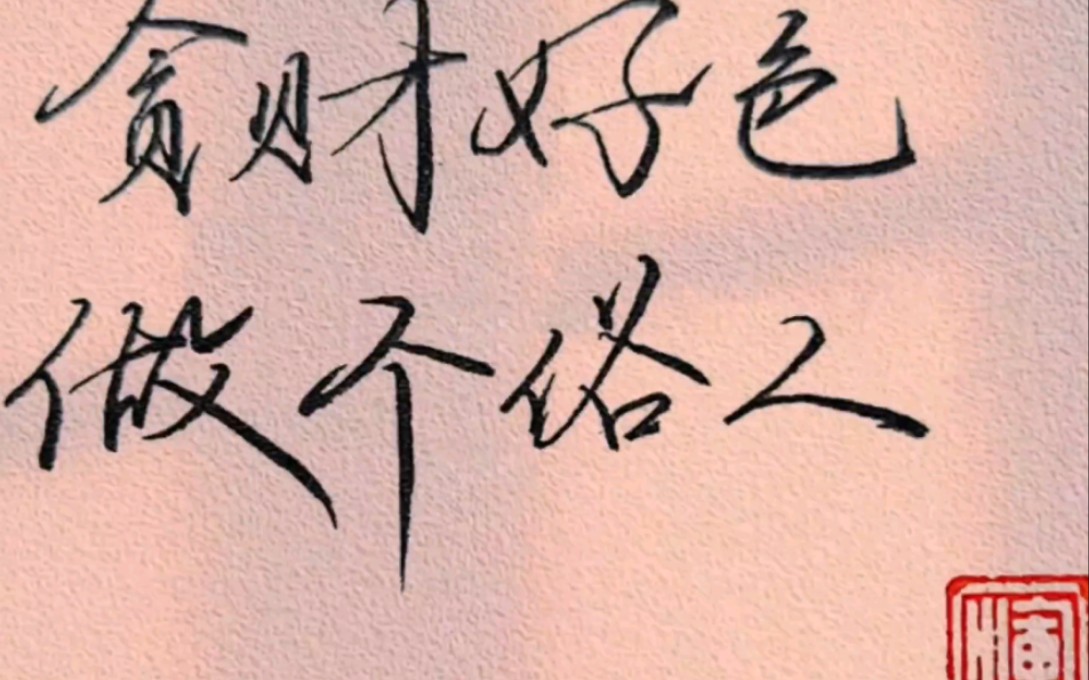 贪财好色
做个俗人